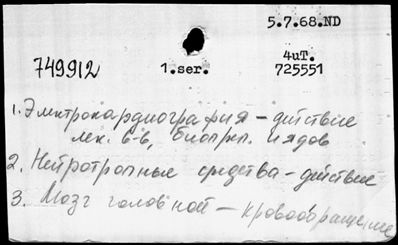 5.7.68.ND
749912
1.ser.
4uT.
725551
1. Электрокардиография – действие
лек. в-в, биопреп. и ядов
2. Нейротропные средства – действие
3. Мозг головной – кровообращение